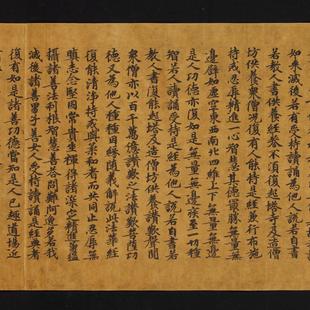 如來滅後若有受持讀誦為他人說若自書
若教人書供養經卷不須復起塔寺及造僧
坊供養衆僧況復有人能持是經兼行布施
持戒忍辱精進一心智慧其德最勝無量無
邊譬如虛空東西南北四維上下無量無邊
是人功德亦復如是無量無邊疾至一切種
智若人讀誦受持是經為他人說若自書若
教人書復能起塔及造僧坊供養讚歎聲聞
衆僧亦以百千萬億讚歎之法讚歎菩薩功
德又為他人種種因緣隨義解說此法華經
復能清淨持戒與柔和者而共同止忍辱無
瞋志念堅固常貴坐禪得諸深定精進勇猛
攝諸善法利根智慧善答問難阿逸多若我
滅後諸善男子善女人受持讀誦是經典者
復有如是諸善功德當知是人已趣道場近